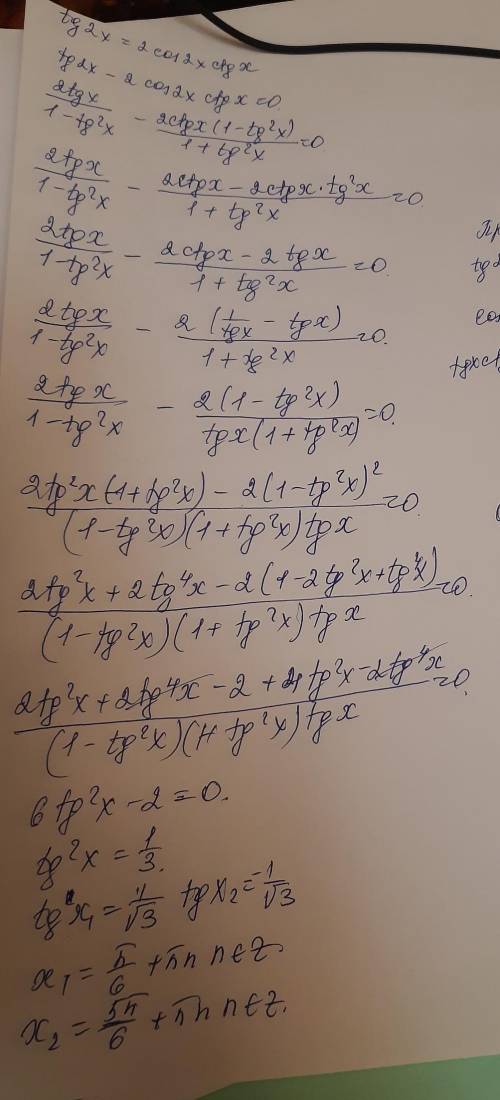 tg2x = 2cos2x ctgx
tg2x - 2 cos2x ctgx = 0
2tgx / 1-tg²x - 2ctgx(1-tg²x) / 1+tg²x = 0
2tgx / 1-tg²x - 2ctgx - 2ctgx·tg²x / 1+tg²x = 0
2tgx / 1-tg²x - 2ctgx - 2tgx / 1+tg²x = 0.
2tgx / 1-tg²x - 2(1/tgx - tgx) / 1+tg²x = 0.
2tgx / 1-tg²x - 2(1-tg²x) / tgx(1+tg²x) = 0.
2tg²x(1+tg²x) - 2(1-tg²x)² / (1-tg²x)(1+tg²x)tgx = 0.
2tg²x + 2tg⁴x - 2(1-2tg²x+tg⁴x) / (1-tg²x)(1+tg²x)tgx = 0.
2tg²x + 2tg⁴x - 2 + 4tg²x - 2tg⁴x / (1-tg²x)(1+tg²x)tgx = 0.
6tg²x - 2 = 0.
tg²x = 1/3.
tgx₁ = 1/√3 tgx₂ = -1/√3
x₁ = π/6 + πn n∈Z.
x₂ = 5π/6 + πn n∈Z.
tgx